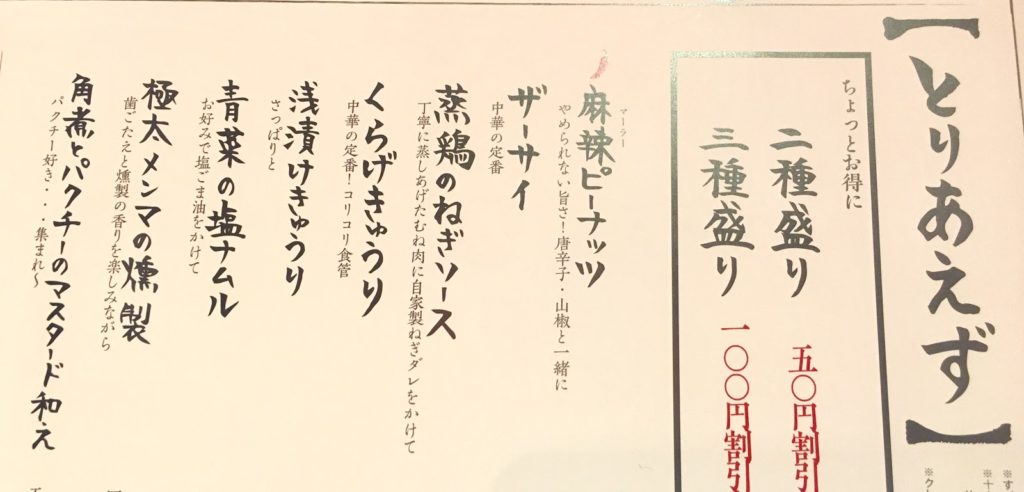 【とりあえず】
ちょっとお得に
二種盛り 五〇円割引
三種盛り 一〇〇円割引
マーラー
麻辣ピーナッツ
やめられない旨さ!唐辛子・山椒と一緒に
ザーサイ
中華の定番
蒸鶏のねぎソース
丁寧に蒸しあげたむね肉に自家製ねぎダレをかけて
くらげきゅうり
中華の定番!コリコリ食管
浅漬けきゅうり
さっぱりと
青菜の塩ナムル
お好みで塩ごま油をかけて
極太メンマの燻製
歯ごたえと燻製の香りを楽しみながら
角煮とパクチーのマスタード和え
パクチー好き・・・集まれ～
※す
※十
※ク